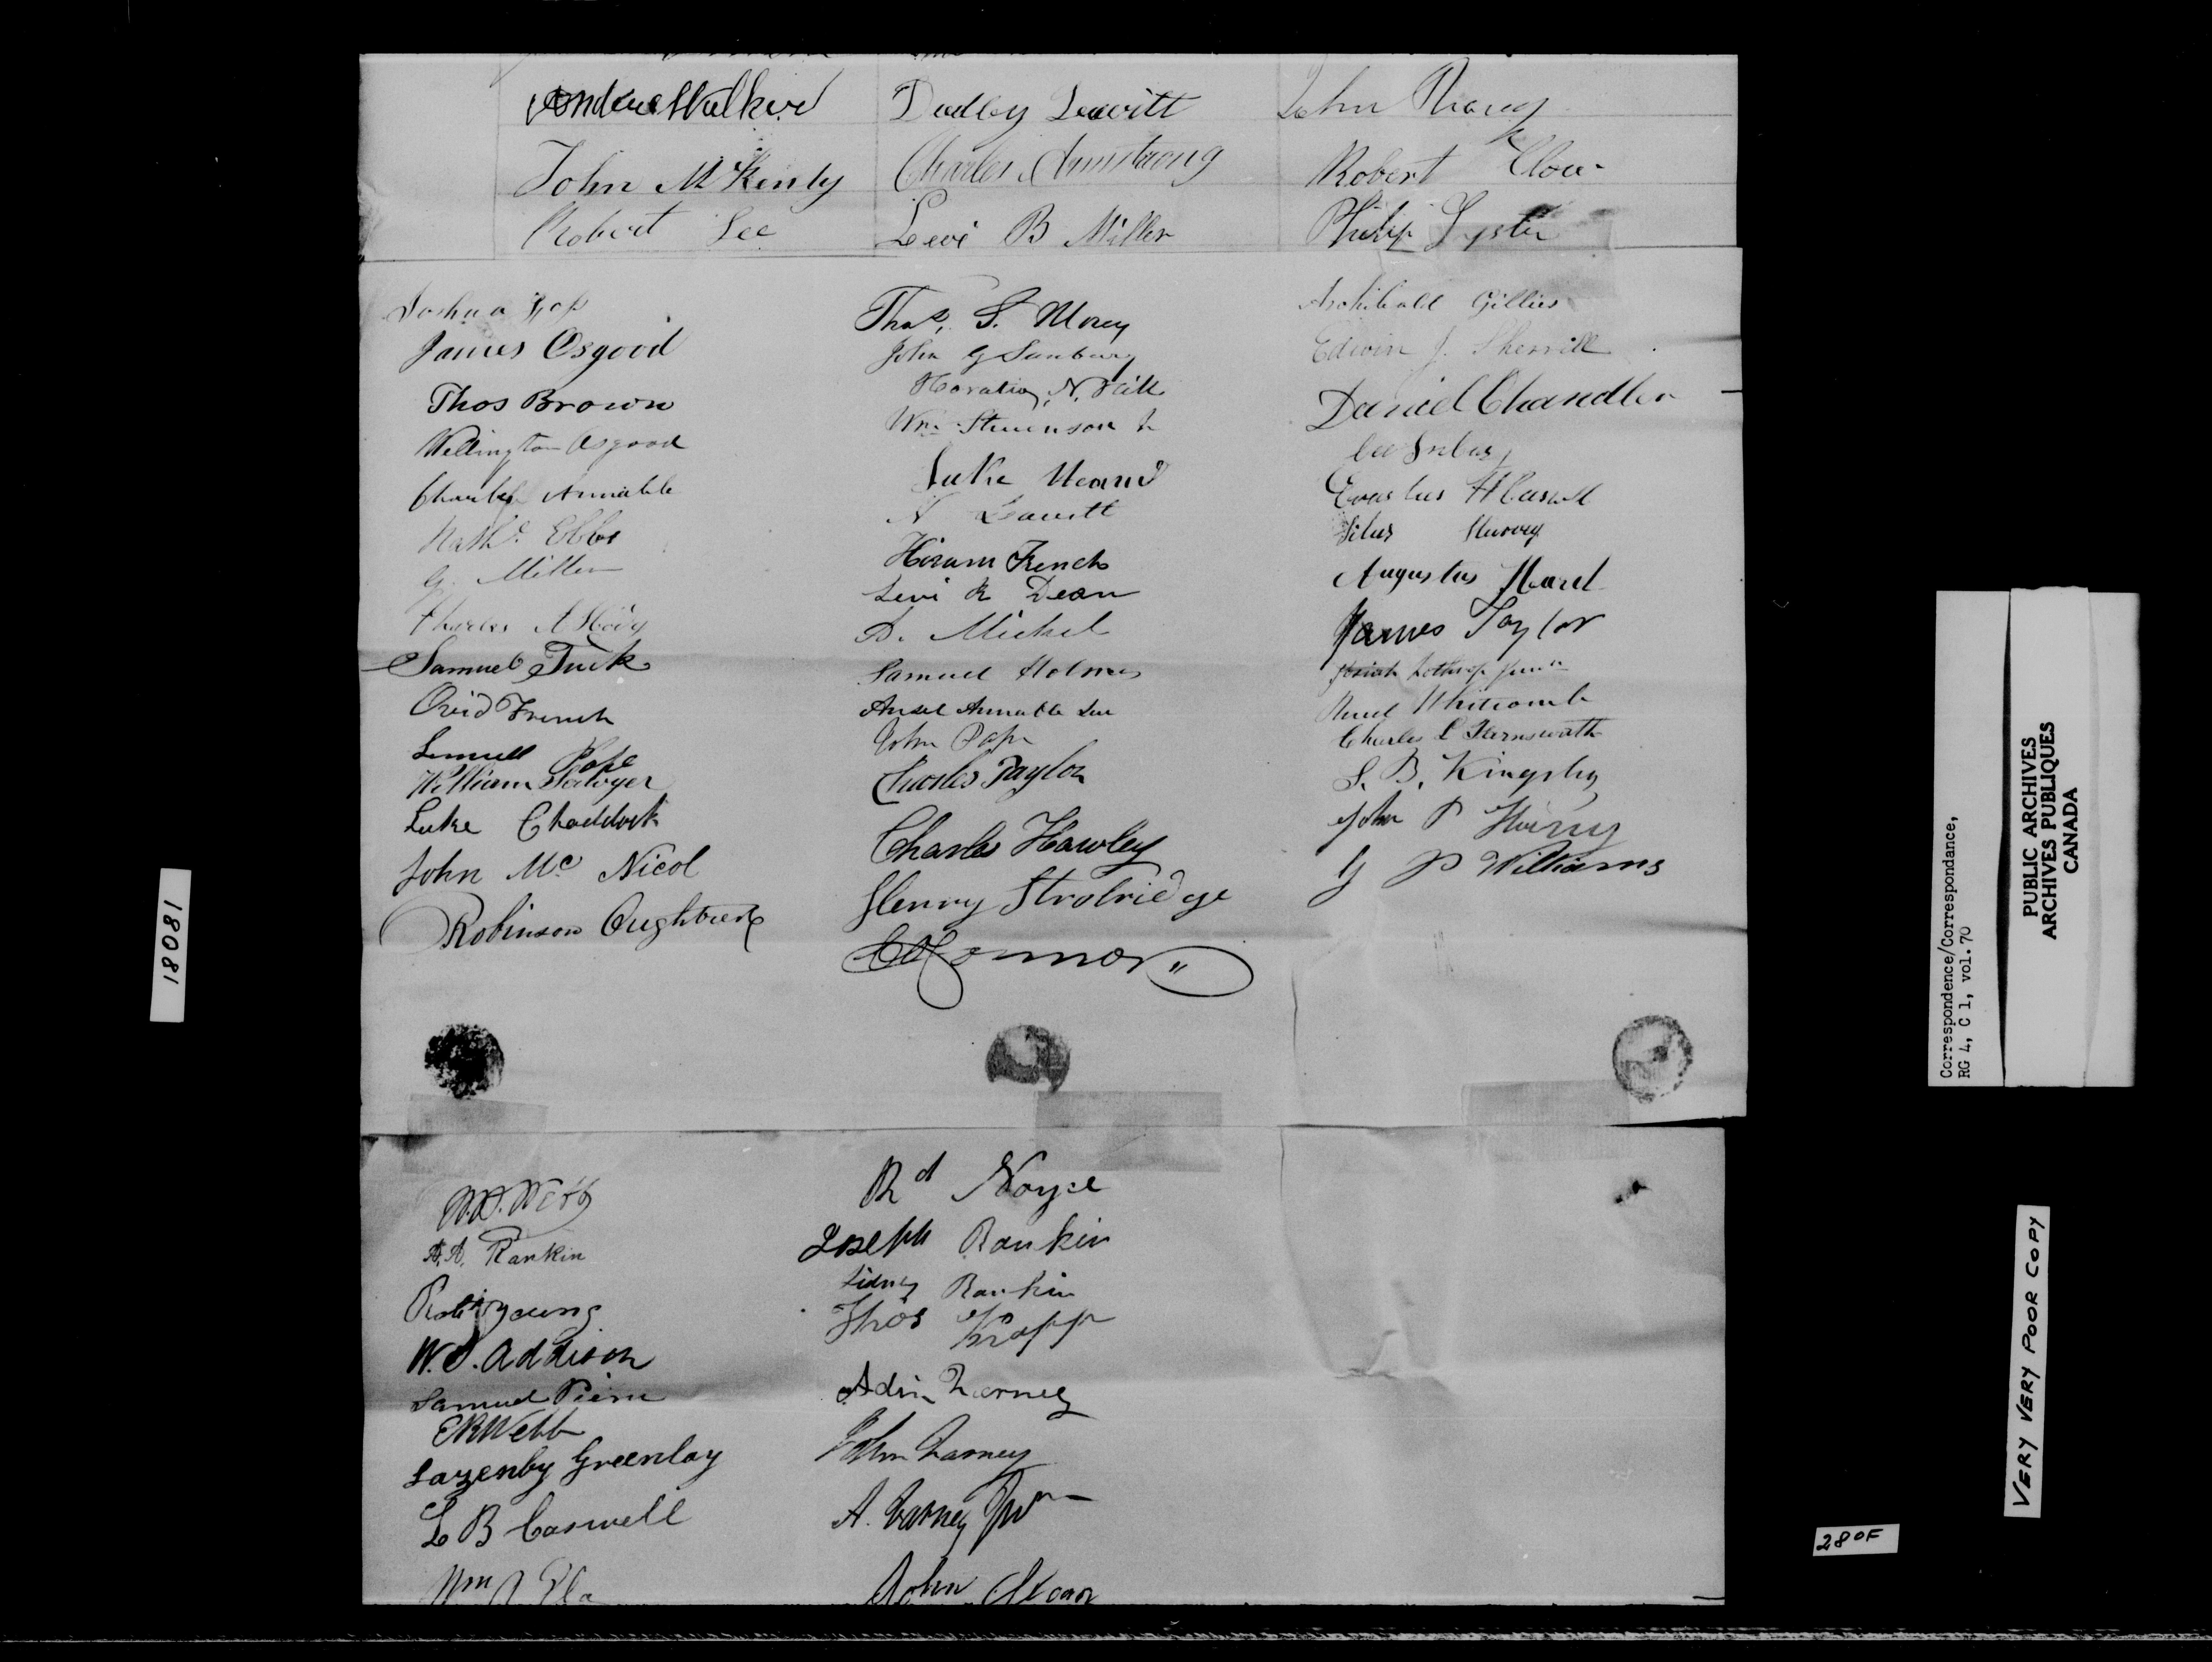 Andrew Walker
John McKenly
Robert Lee
Dudley Leavitt
Charles Armstrong
Levi B Miller
John
Robert Clow
Philip Lyster
Joshua
James Osgood
Thos Brown
Wellington Osgood
Charles Annable
Nathl.
G. Miller
Charles A
Samuel Tuck
Ovid French
Lemuel Pope
William Sawyer
Luke Chaddock
John Mc Nicol
Robinson Oughtred
Thos. S. Morey
John G Sanbury
Horatio N. Hill
Wm. Stevenson
Luke
N Leavitt
Hiram French
Levi R Dean
Samuel Holmes
Ansel Annable
John Pope
Charles Taylor
Charles Hawley
Henry Strobridge
Archibald Gillies
Edwin J. Sherrill
Daniel Chandler
Erastus
Silas
Augustus Hard
James Taylor
Josiah Lothrop
Whitcomb
Charles C
S. B. Kingsley
John P
G P Williams
W.D. Webb
A.A. Rankin
Robt Young
W. S. Addison
Samuel
E R Webb
Lazenby Greenlay
L B Caswell
Wm Ela
Rd Noyce
Joseph Rankin
Sidney Rankin
Thos Knapp
Varney
John Varney
A. Varney
John Sloan
18081
Correspondence/Correspondance,
RG 4, C 1, vol.70
PUBLIC ARCHIVES
ARCHIVES PUBLIQUES
CANADA
VERY VERY POOR COPY
280F